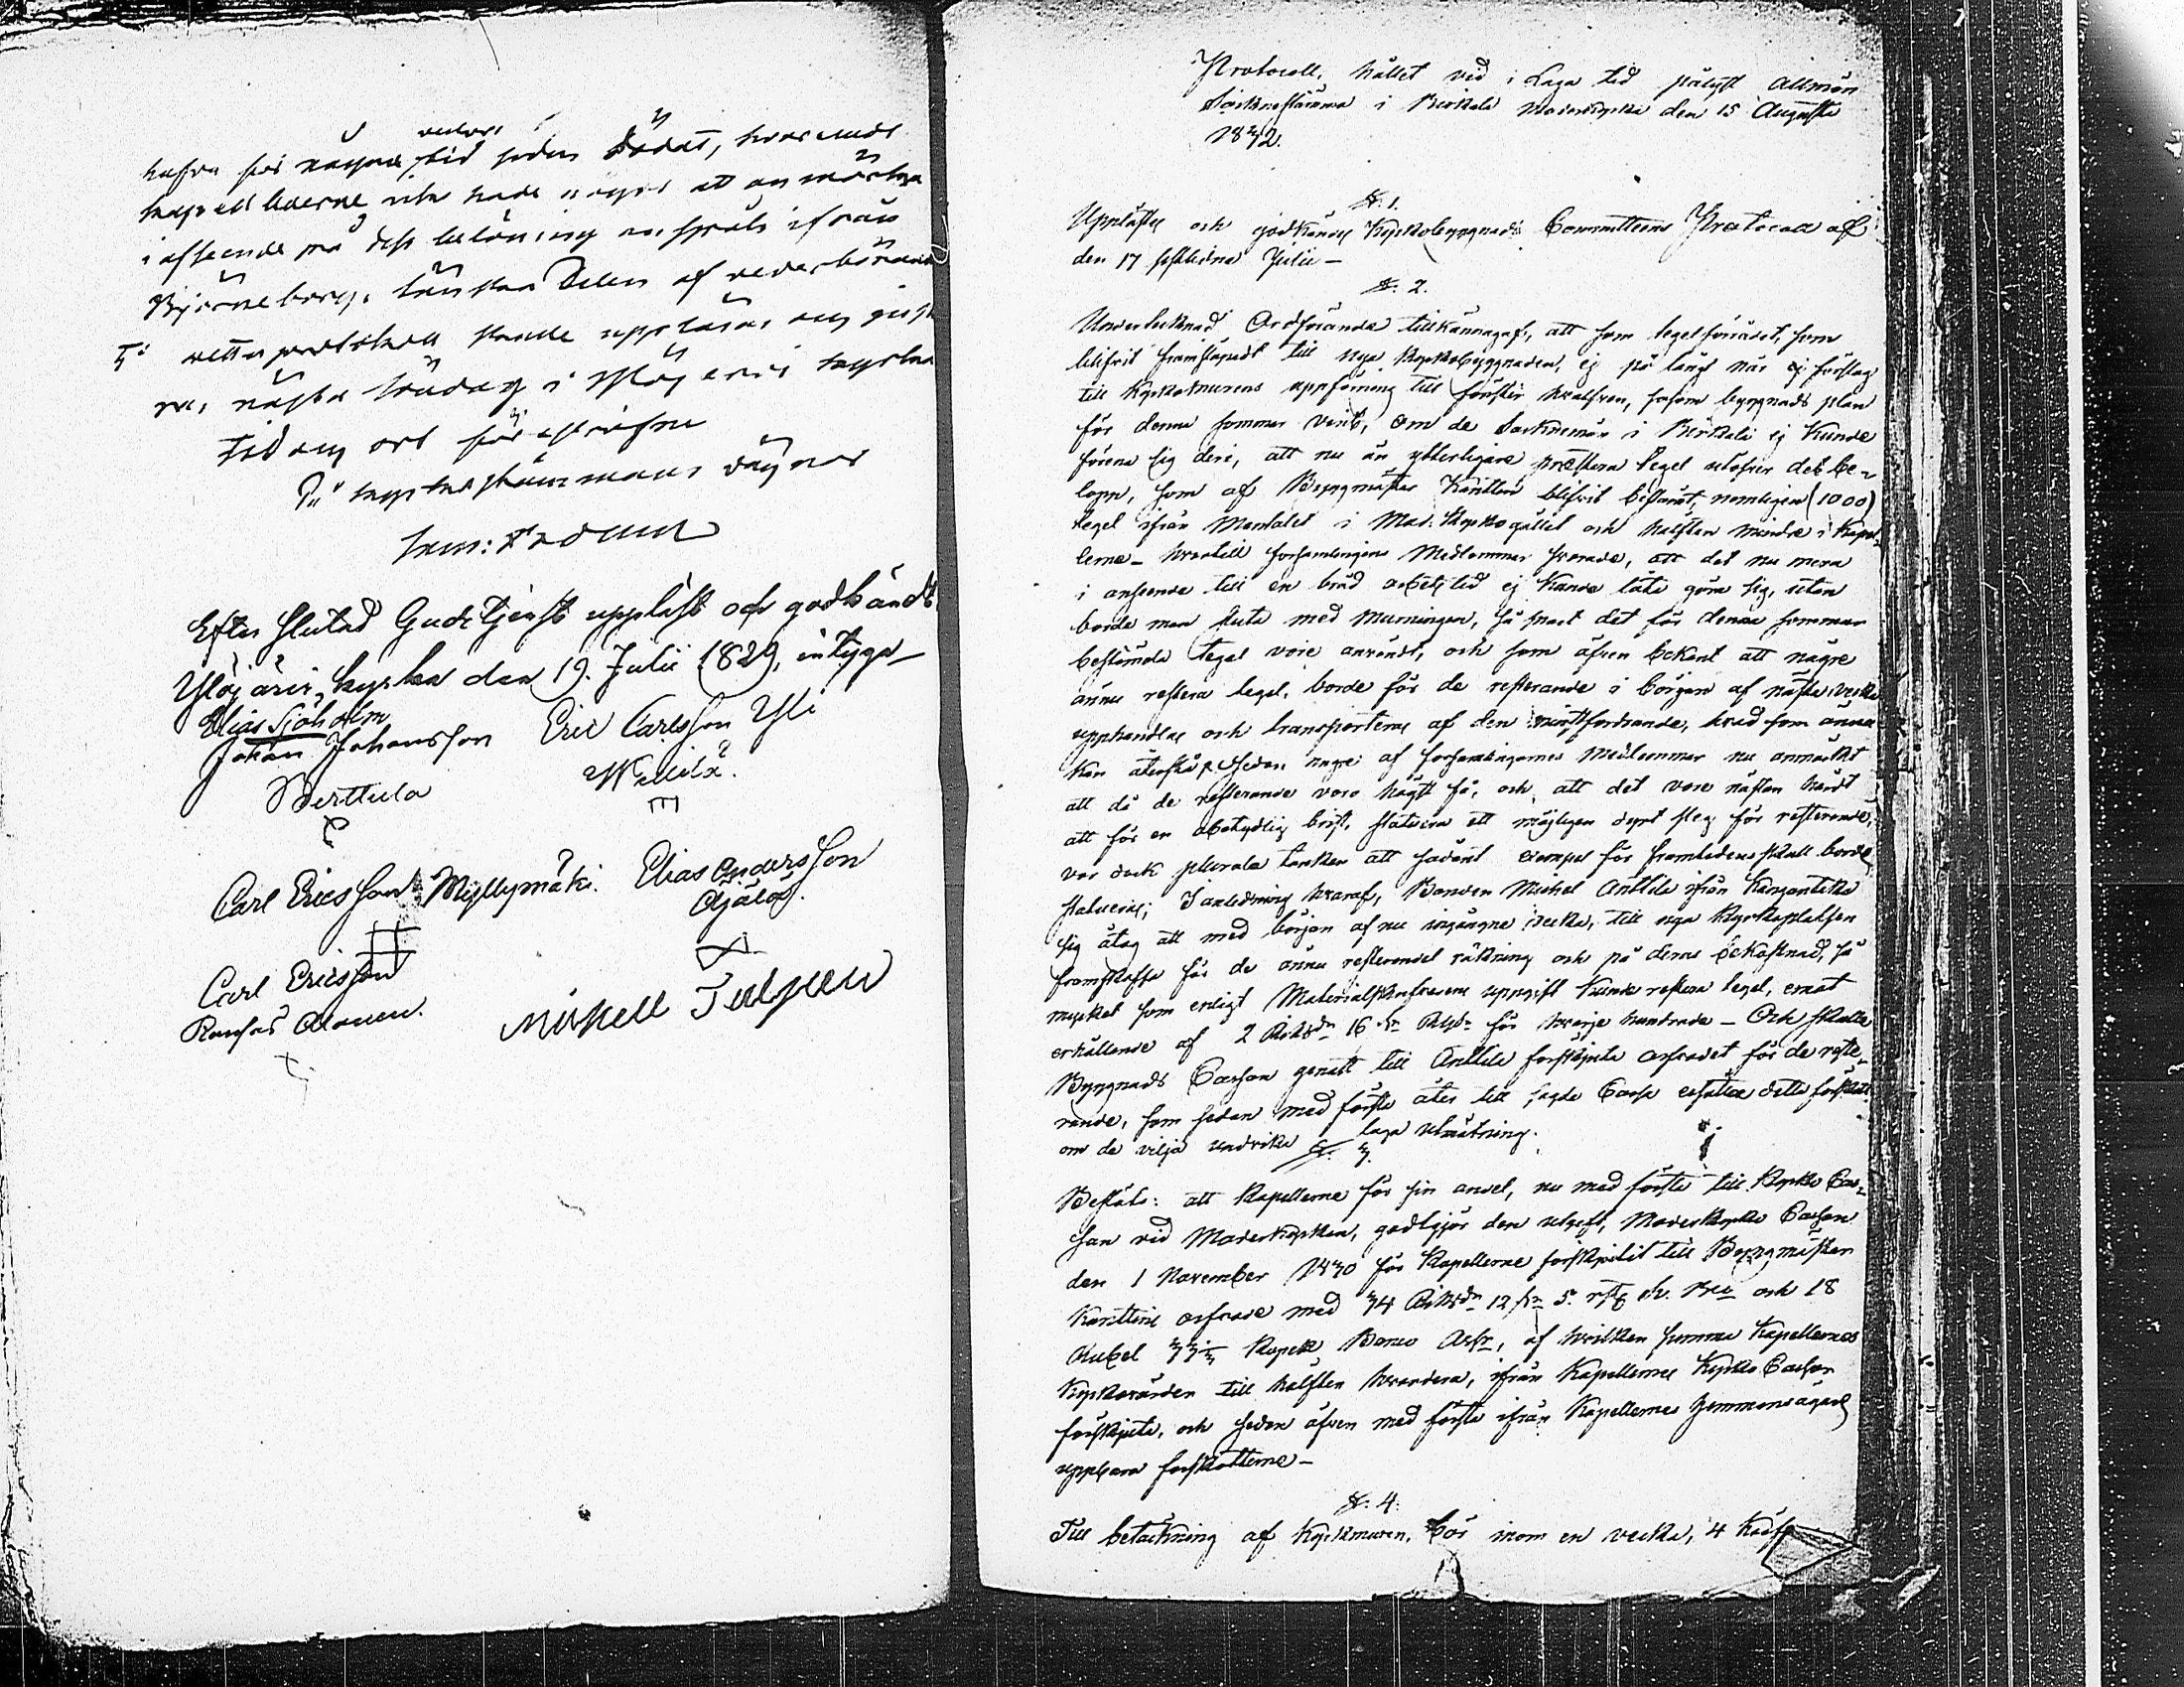 hafva för några tid sedan dödat, hvaremot
kapellboerne icke hade något att anmärka
i afseende på dess belöning
Björneborgs länska delen af vederbörande
protokoll skulle uppläsas
nästa söndag i Ylöjärvi kyrka
tid och ort föreskrifne
På kyrkostämmans vägnar
Efter slutad Gudstjenst uppläst och godkändt
Ylöjärvi kyrka den 19. Julii 1829, intyga_
Elias Sjöholm
Johan Johansson Eric Carlsson Yli
Berttula
Carl Ericsson Myllymäki. Elias Andersson
Carl Ericsson
Mickell
Protocoll, hållet vid i Laga tid pålyst Allmän
Socknestämma i Birkala Moderkyrka den 15 Augusti
1832.
§. 1.
Upplästes och godkändes Kyrkobyggnads Committeens Protocoll af
den 17 sistledne Julii_
§. 2.
Undertecknad Ordförande tillkännagaf, att som tegelförrådet, som
blifvit framskaffadt till nya Kyrkobyggnaden, ej på långt när ej förslog
till Kyrkomurens uppföring till fönster hvalfven, såsom byggnads plan
för denna sommar varit, om de Socknemän i Birkala ej kunde
förena sig deri, att nu än ytterligare præstera tegel utöfver det be-
lopp, som af Byggmästar blifvit bestämdt, nemligen (1000)
tegel ifrån Mantalet i Mod. Kyrkogället och hälften mindre i Kapel-
lerne_ hvartill församlingens Medlemmar svarade, att det nu mera
i anseende till en bråd arbetstid ej kunde låta göra sig, utan
borde man sluta med murningen, så snart det för denna sommar
bestämda tegel vore användt, och som äfven bekant att någre
ännu restera tegel, borde för de resterande i början af nästa vecka
upphandlas och transporteras af den minstfordrande, hvad som ännu
kan återstå; Sedan någre af församlingernes Medlemmar nu anmärkt
att då de resterande voro högst få, och att det vore nästan hårdt
att för en obetydlig brist, statuera ett möjligen dyrt steg för resterande,
var dock plurala tanken att sådant exempel för framtidens skull borde
statueras; I anledning hvaraf, Bonden Michel Anttila ifrån
sig åtog att med början af nu ingångne vecka, till nya Kyrkoplatsen
framskaffa för de ännu resterandes räkning och på deras bekostnad, så
mycket som enligt uppgift kunde restera tegel, emot
erhållande af 2 Riksdr 16 sk Rgds för hvarje hundrade_ Och skulle
Byggnads Cassan genast till Anttila förskjuta arfvodet för de reste-
rande, som sedan med första åter till sagde Cassa ersätta detta förskott
om de vilja undvika laga utmätning.
§. 3.
Beslöts: att Kapellerne för sin andel, nu med första till Kyrko Cas-
san vid Moderkyrkan, godtgjör den utgift, Moderkyrko Cassan
den 1 November 1830 för Kapellerne förskjutit till Byggmästar
arfvode med 34 Riksdr 12 sk 5. och 18
Rubel 33⅓ Kopek Banco Assr, af hvilken summa Kapellernes
Kyrkovärder till hälften hvardera, ifrån Kapellernes Kyrko Cassor
förskjuta, och sedan äfven med första ifrån Kapellernes Hemmansägare
uppbära förskotterne_
§. 4.
Till betäckning af Kyrkmuren, bör inom en vecka, 4